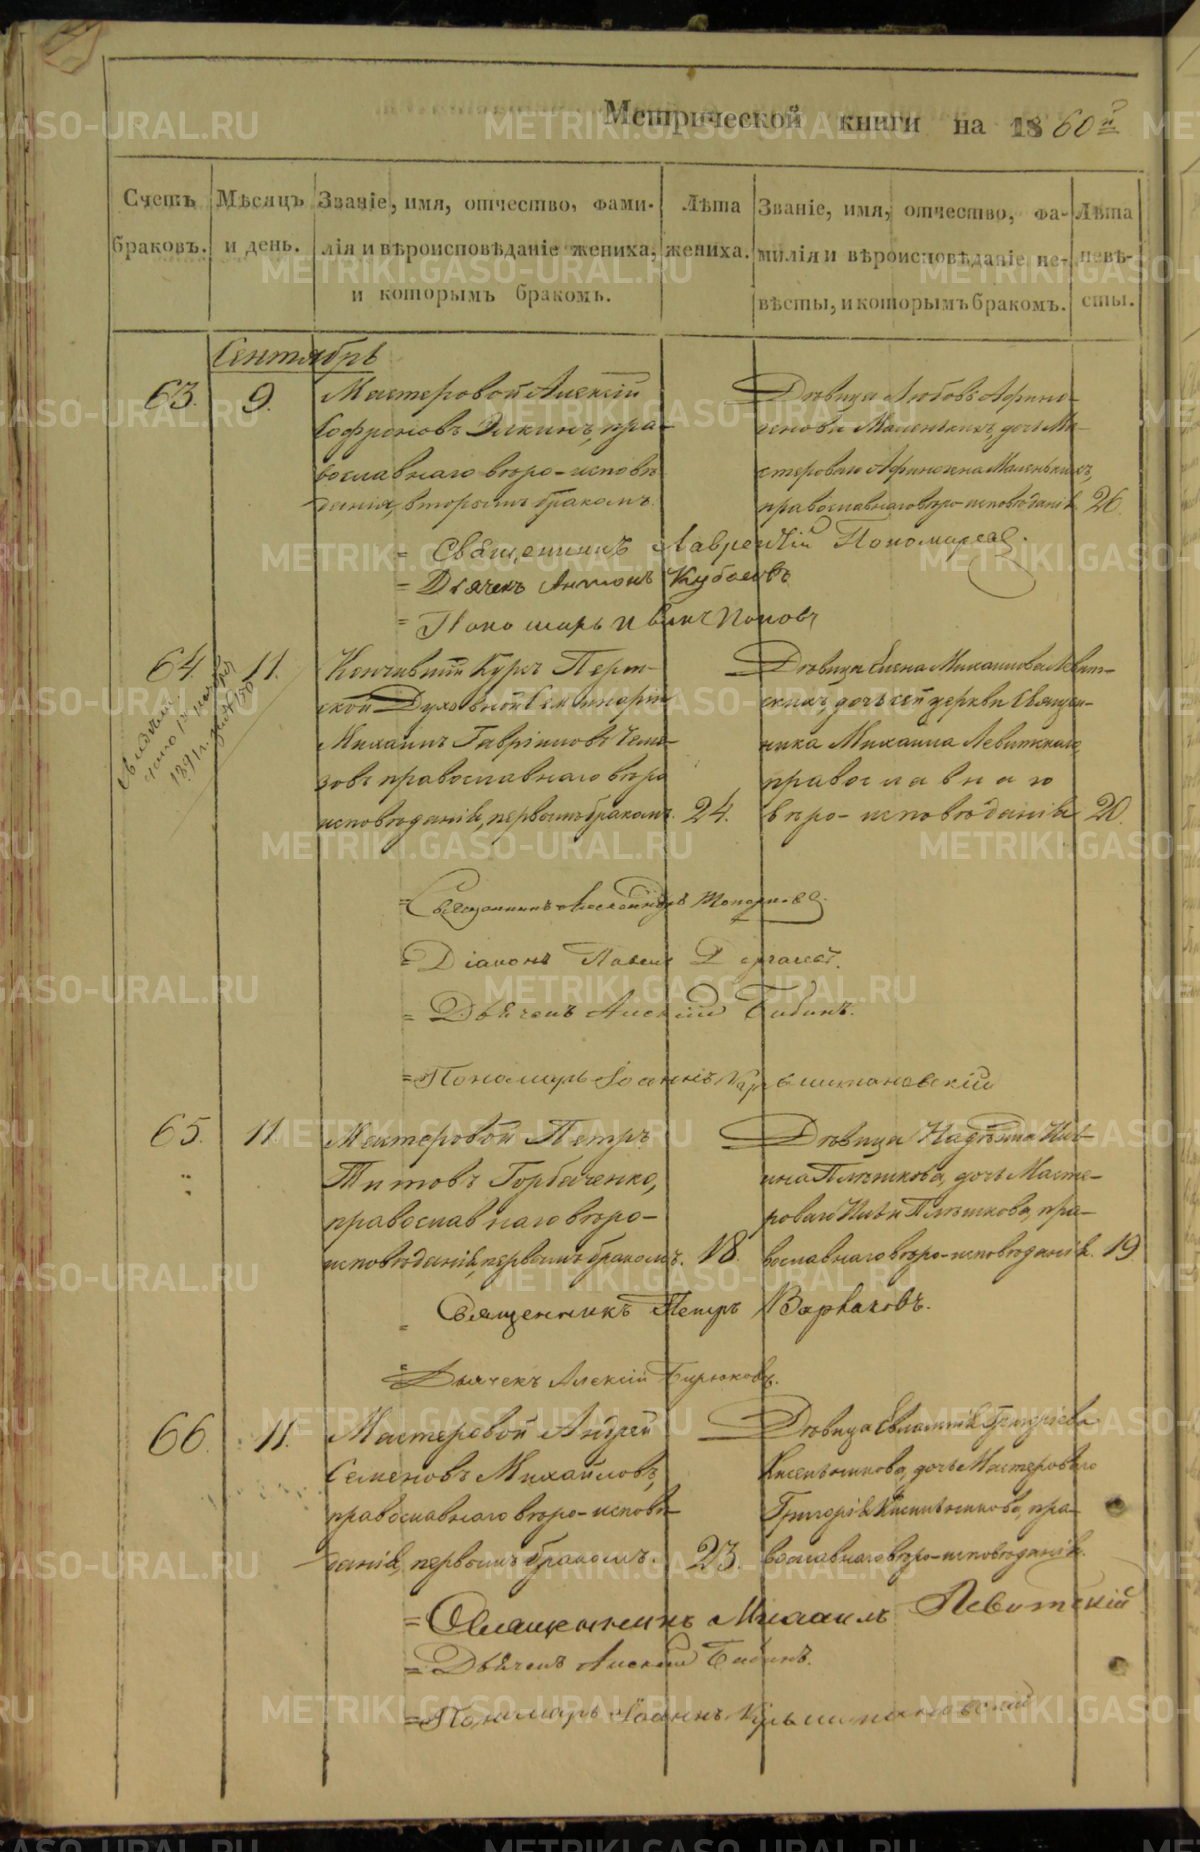 Метрической книги на 1860й
Счетъ браковъ.
Мѣсяцъ и день.
Званіе, имя, отчество, фами-
лія и вѣроисповѣданіе жениха,
и которымъ бракомъ.
Лѣта жениха.
Званіе, имя, отчество, фа-
милія и вѣроисповѣданіе не-
вѣсты, и которымъ бракомъ.
Лѣта невѣ-
сты.
Сентябрь
63. 9.
Мастеровой Алексій
Софроновъ Элкинъ, пра-
вославнаго вѣро-исповѣ-
данія, вторымъ бракомъ.
Дѣвица Любовь Афино-
генова Маленькихъ, дочь Ма-
стероваго Афиногена Маленькихъ,
православнаго вѣро-исповѣданія. 26.
= Священникъ Лаврентій Пономаревъ.
= Дьячекъ Антонъ
= Пономарь Иванъ Поповъ
64. 11.
Кончившій Курсъ Перм-
ской Духовной Семинаріи
Михаилъ Гавріиловъ
православнаго вѣро
исповѣданія, первымъ бракомъ. 24.
Дѣвица Елена Михаилова Левит-
скихъ, дочь сей церкви Священ-
ника Михаила Левитскаго
православнаго
вѣро-исповѣданія 20.
= Священникъ Александръ Топорковъ.
= Діаконъ Павелъ
= Дьячекъ Алексій Бабинъ.
= Пономарь Іоаннъ
65. 11.
Мастеровой Петръ
Титовъ Горбаченко,
православнаго вѣро-
исповѣданія, первымъ бракомъ. 18.
Дѣвица Надежда Иль-
ина Плѣшкова, дочь Масте-
роваго Ильи Плѣшкова, пра-
вославнаго вѣро-исповѣданія. 19
= Священникъ Петръ Варваковъ.
= Дьячекъ Алексій Бирюковъ.
66. 11.
Мастеровой Андрей
Семеновъ Михайловъ,
православнаго вѣро-исповѣ-
данія, первымъ бракомъ. 23.
Дѣвица Евлампія Григріева
дочь Мастероваго
Григорія пра-
вославнаго вѣро-исповѣданія.
= Священникъ Михаилъ Левитскій
= Дьячекъ Алексій Бабинъ.
= Пономарь Іоаннъ
METRIKI.GASO-URAL.RU